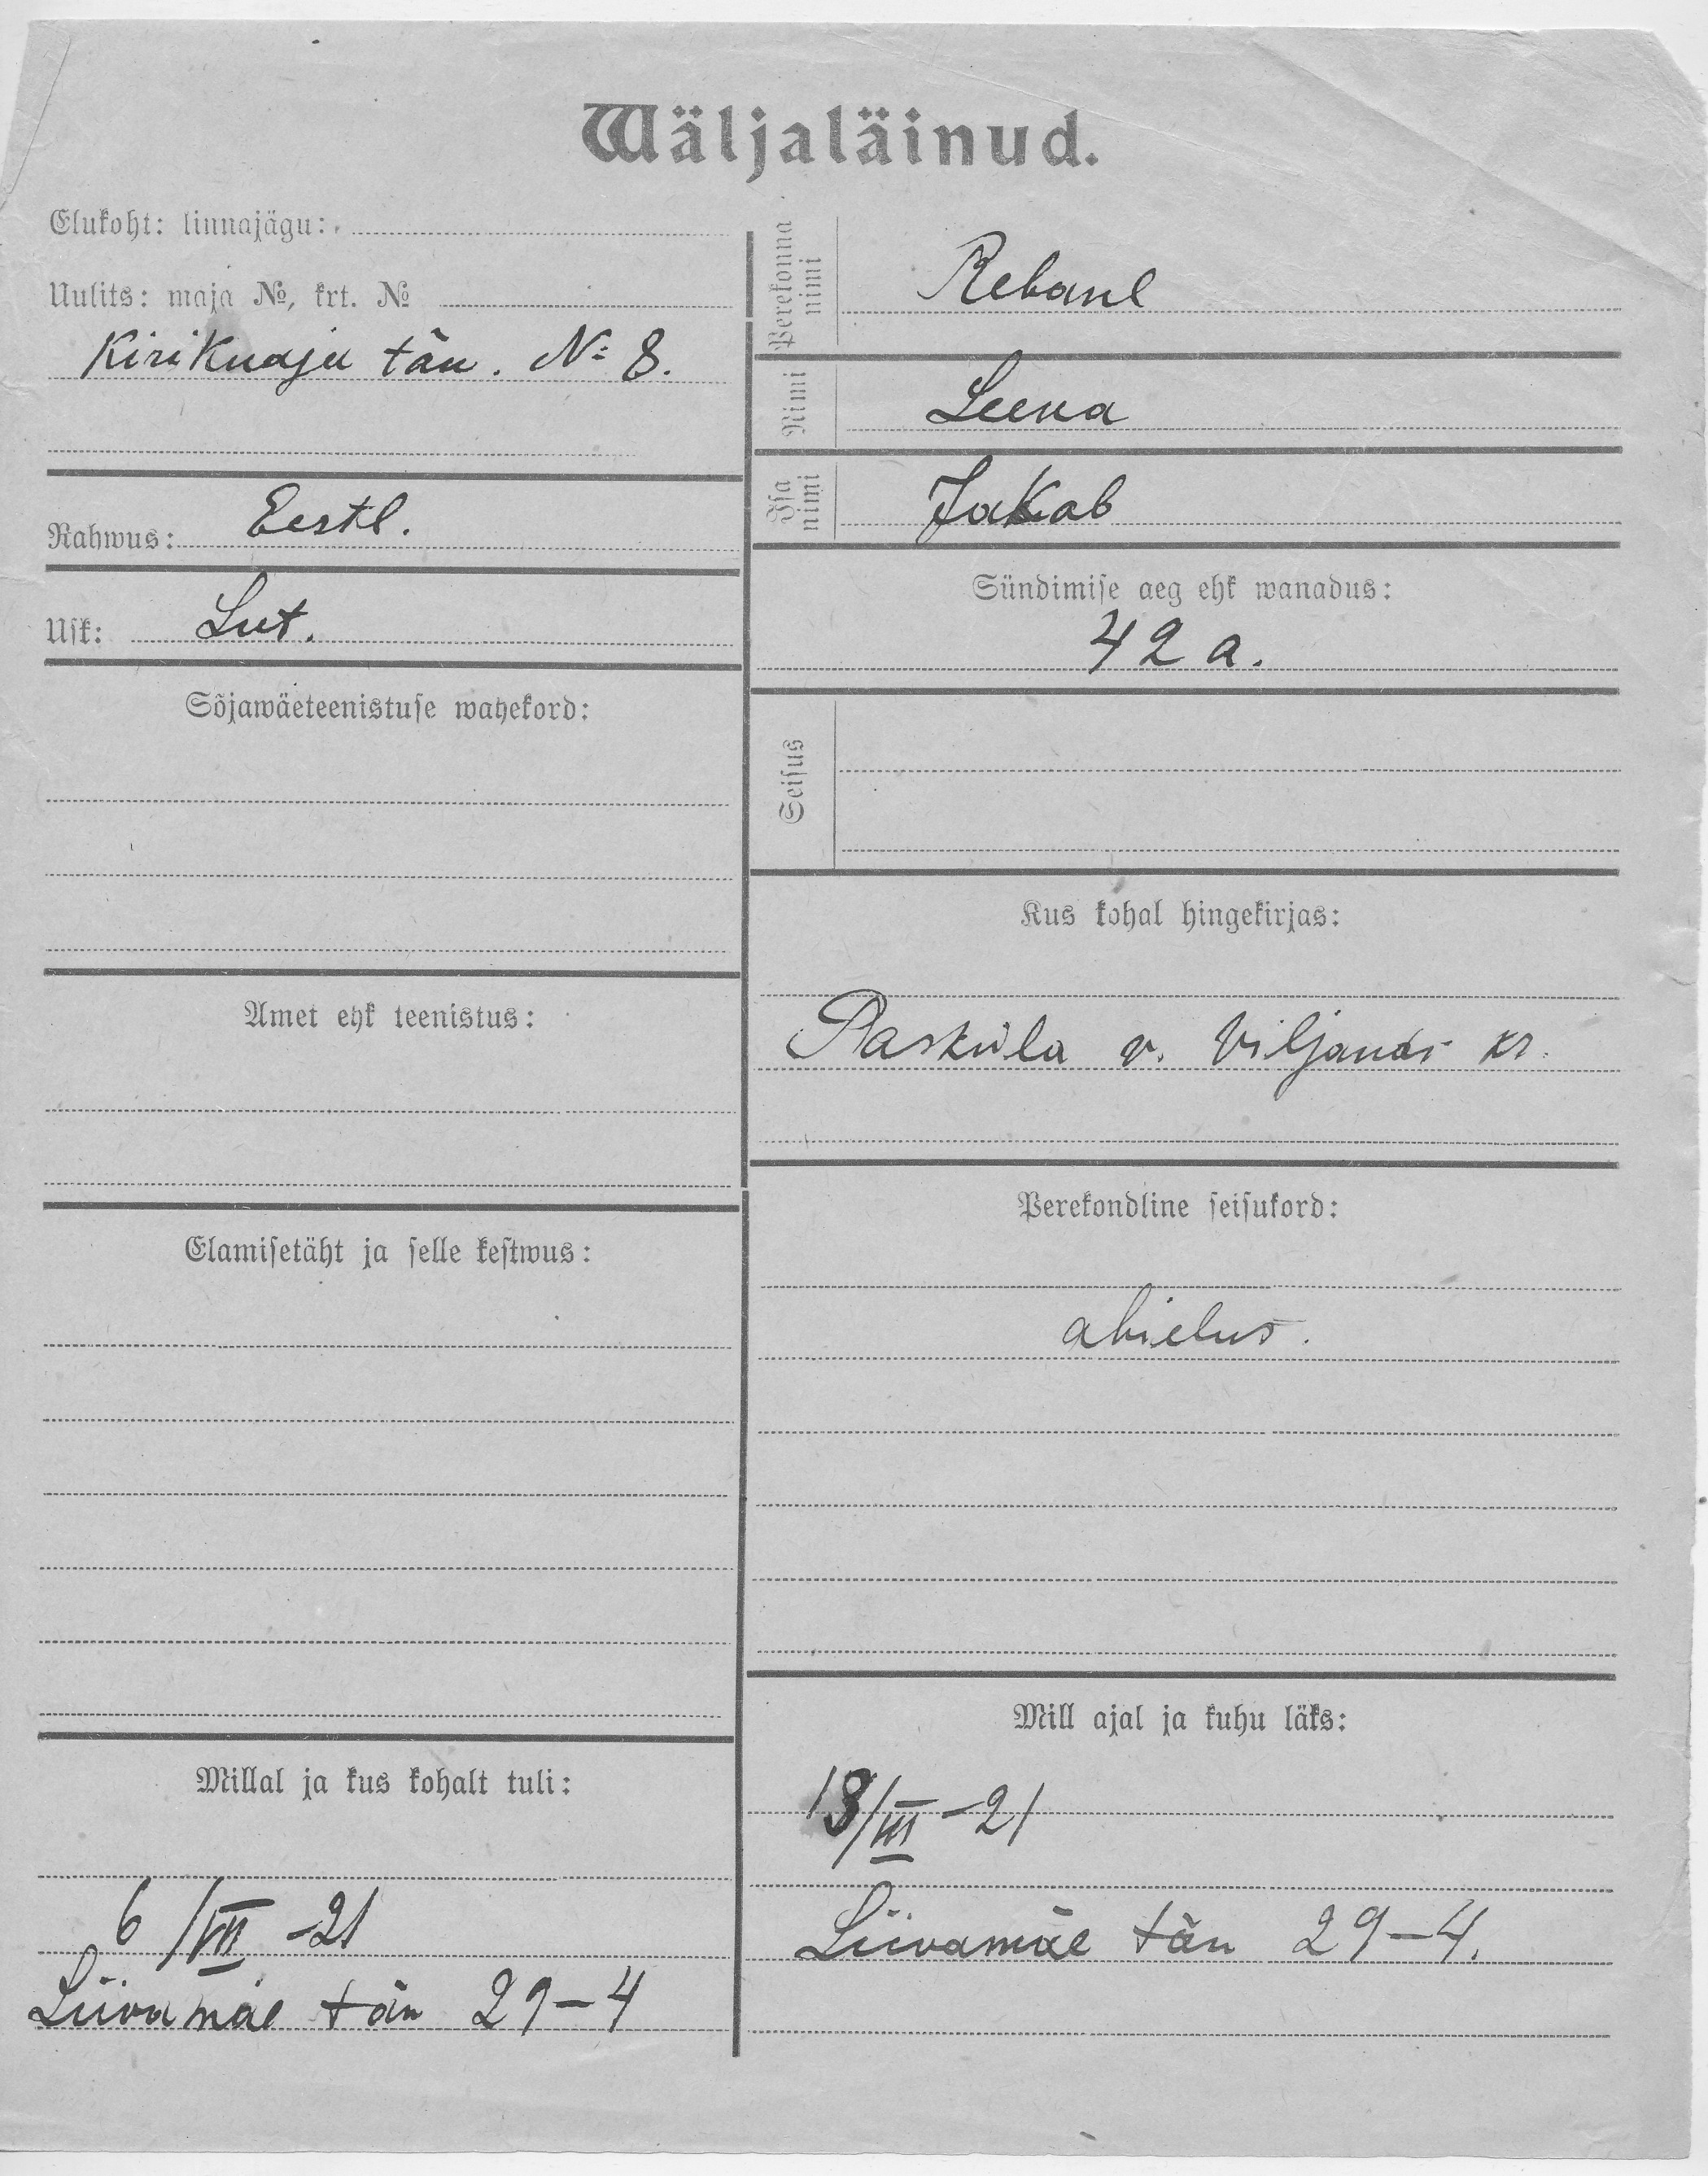 Wäljaläinud.
Elukoht: linnajägu:
Uulits: maja №, krt. №
Kirikuaja tän. № 8.
Rahwus: Eestl.
Usk: Lut.
Sõjawäeteenistuse wahekord:
Amet ehk teenistus:
Elamisetäht ja selle kestwus:
Millal ja kus kohalt tuli:
6/VII -21
Liivamäe tän 29-4
Perekonna nimi
Rebane
Nimi
Leena
Isa nimi
Jakob
Sündimise aeg ehk wanadus:
42 a.
Seisus
Kus kohal hingekirjas:
v. Viljandi kr.
Perekondline seisukord:
abielus.
Mill ajal ja kuhu läks:
13/III -21
Liivamäe tän 29-4.